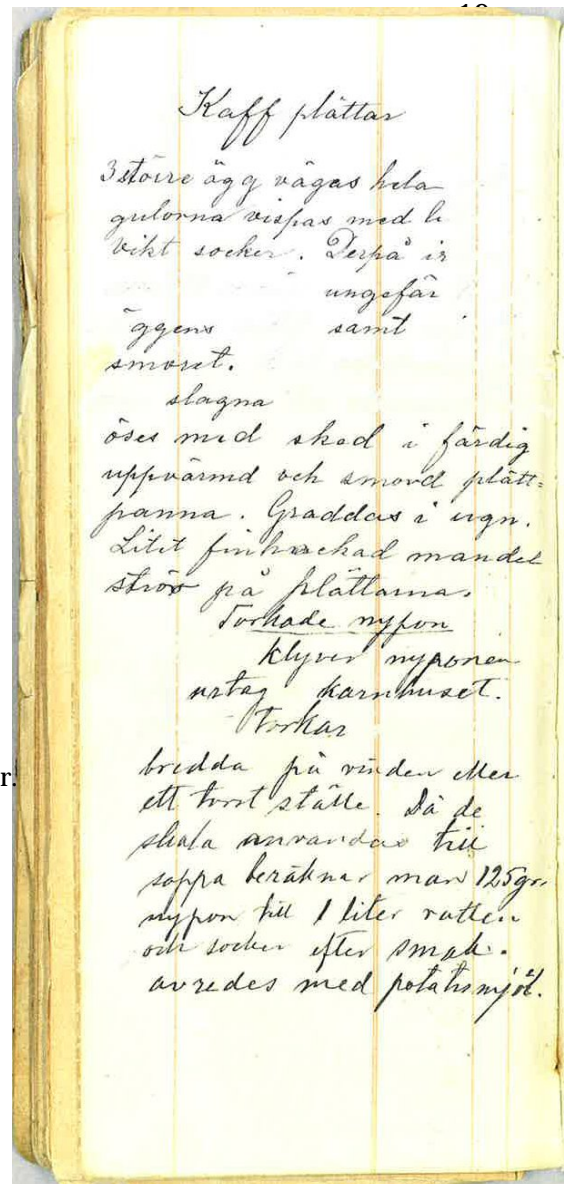 Kaff plättar
3 större ägg vägas hela
gulorna vispas med
vikt socker. Derpå
ungefär
äggens samt
smöret.
slagna
öses med sked i färdig
uppvärmd och smord plätt=
panna. Gräddas i ugn.
Litet finhackad mandel
strös på plättarna.
Torkade nypon
Klyver nyponen
urtag kärnhuset.
Torkar
bredda på vinden eller
ett torrt ställe. Då de
skola användas till
soppa beräknar man 125gr.
nypon till 1 liter vatten
och socker efter smak.
avredes med potatismjöl.
r.